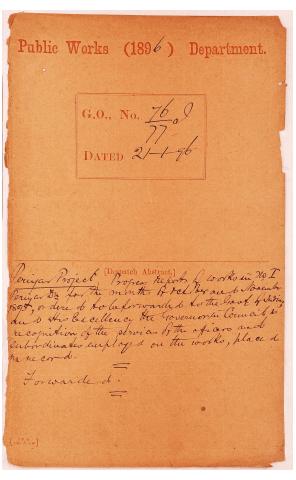 Public Works (1896) Department.
G.O., No. 76
77
DATED 21-1-96
[Despatch Abstract.]
Periyar Project Progress Reports of works in No I
Periyar Dn for the months of October and November
1895, ordered to be forwarded to the Govt of India
and His Excellency the Governor in Council's
recognition of the services of the officers and
subordinates employed on the works, placed
on record.
Forwarded.